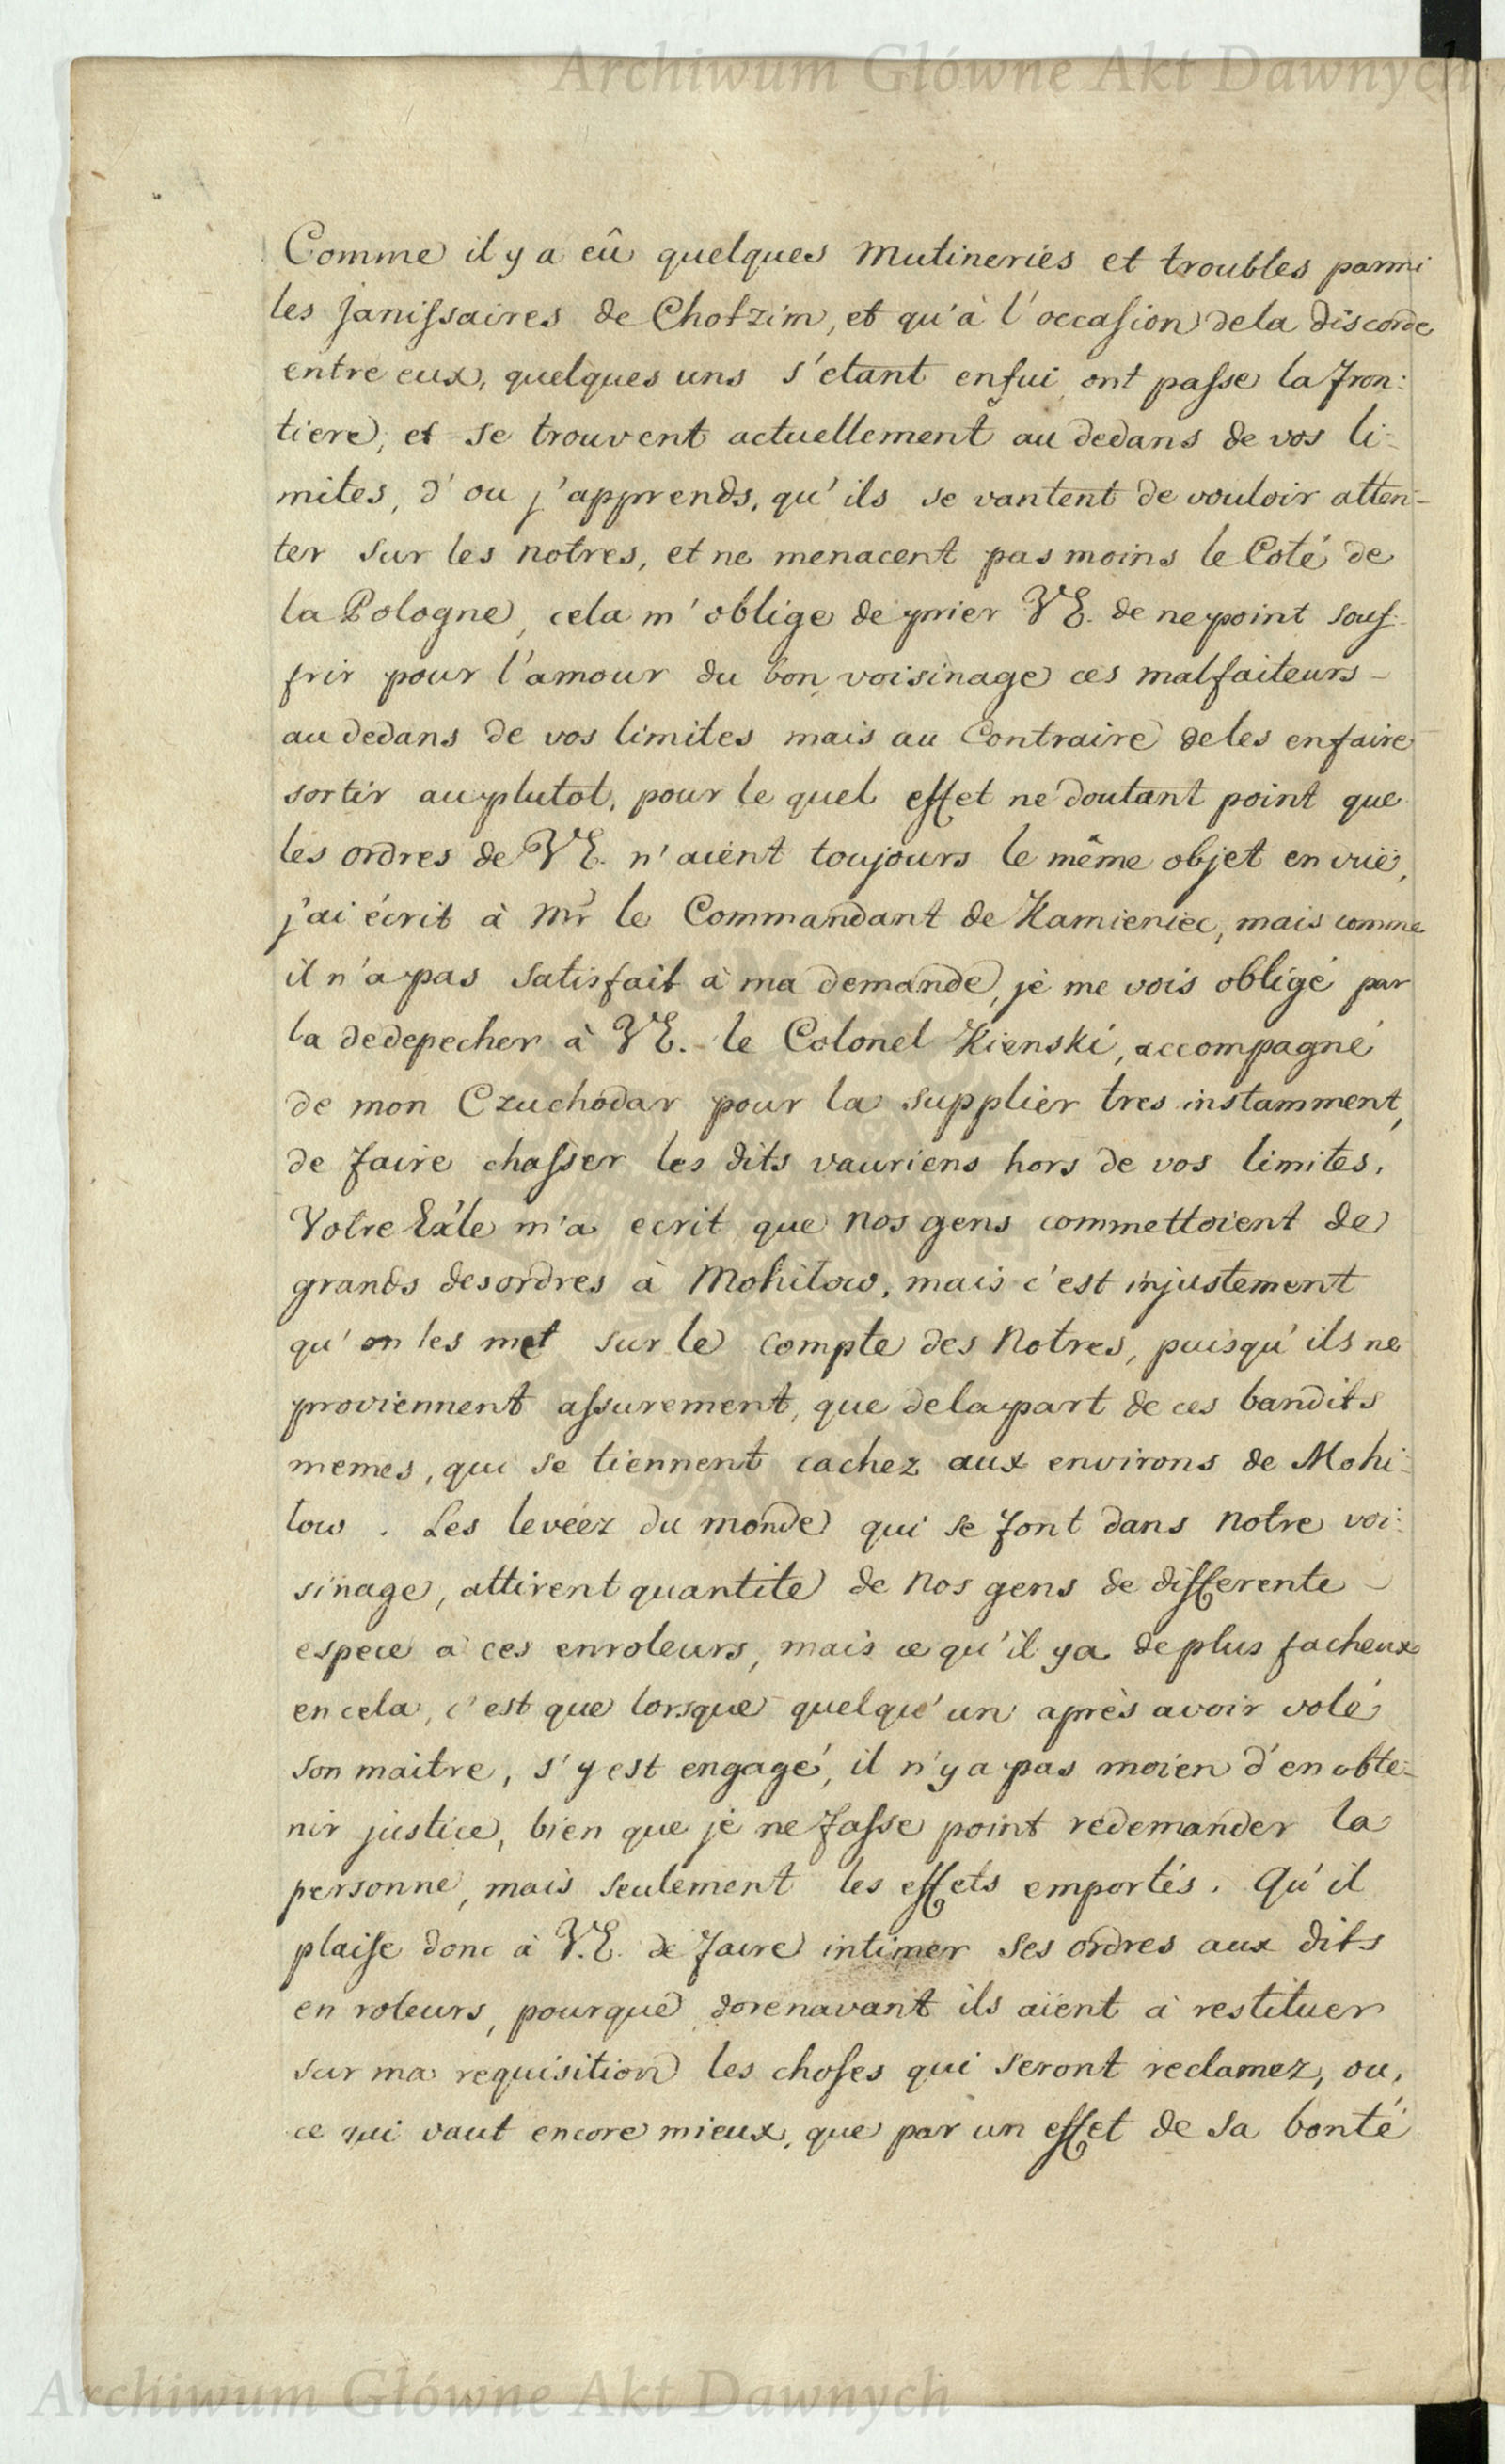 Archiwum Główne Akt Dawnych
Comme il y a eû quelques Mutineries et troubles parmi
les Janiſsaires de Chotzim, et qu'à l'occaſion de la discorde
entre eux, quelques uns s'etant enfui ont paſse la fron:
tiere, et se trouvent actuellement au dedans de vos li-
mites, d'ou j'apprends, qu'ils se vantent de vouloir atten-
ter sur les notres, et ne menacent pas moins le Coté de
la Pologne, cela m'oblige de prier VE. de ne point souf-
frir pour l'amour du bon voisinage ces malfaiteurs -
au dedans de vos limites mais au Contraire de les en faire
sortir au plutot, pour le quel effet ne doutant point que
les ordres de VE. n'aient toujours le même objet en vüe,
j'ai écrit à Mr le Commandant de Kamieniec, mais comme
il n'a pas satisfait à ma demande, je me vois obligé par
la de depecher à VE. le Colonel Kienski, accompagné
de mon Czuchodar pour la supplier tres instamment,
de faire chaſser les dits vauriens hors de vos limites.
Votre Exle m'a ecrit que nos gens commettoient de
grands desordres à Mohilow, mais c'est injustement
qu'on les met sur le compte des Notres, puisqu'ils ne
proviennent aſsurement, que de la part de ces bandits
memes, qui se tiennent cachez aux environs de Mohi:
low. Les levéez du monde qui se font dans notre voi:
sinage, attirent quantite de nos gens de differente -
espece a ces enroleurs, mais ce qu'il y a de plus facheux
en cela, c'est que lorsque quelqu'un après avoir volé
son maitre, s'y est engagé, il n'y a pas moien d'en obte-
nir justice, bien que je ne faſse point redemander la
personne, mais seulement les effets emportés. Qu'il
plaiſe donc à V.E. de faire intimer ses ordres aux dits
en roleurs, pourque dorenavant ils aïent à restituer
sur ma requisition les choſes qui seront reclamez, ou,
ce qui vaut encore mieux, que par un effet de sa bonté
Archiwum Główne Akt Dawnych